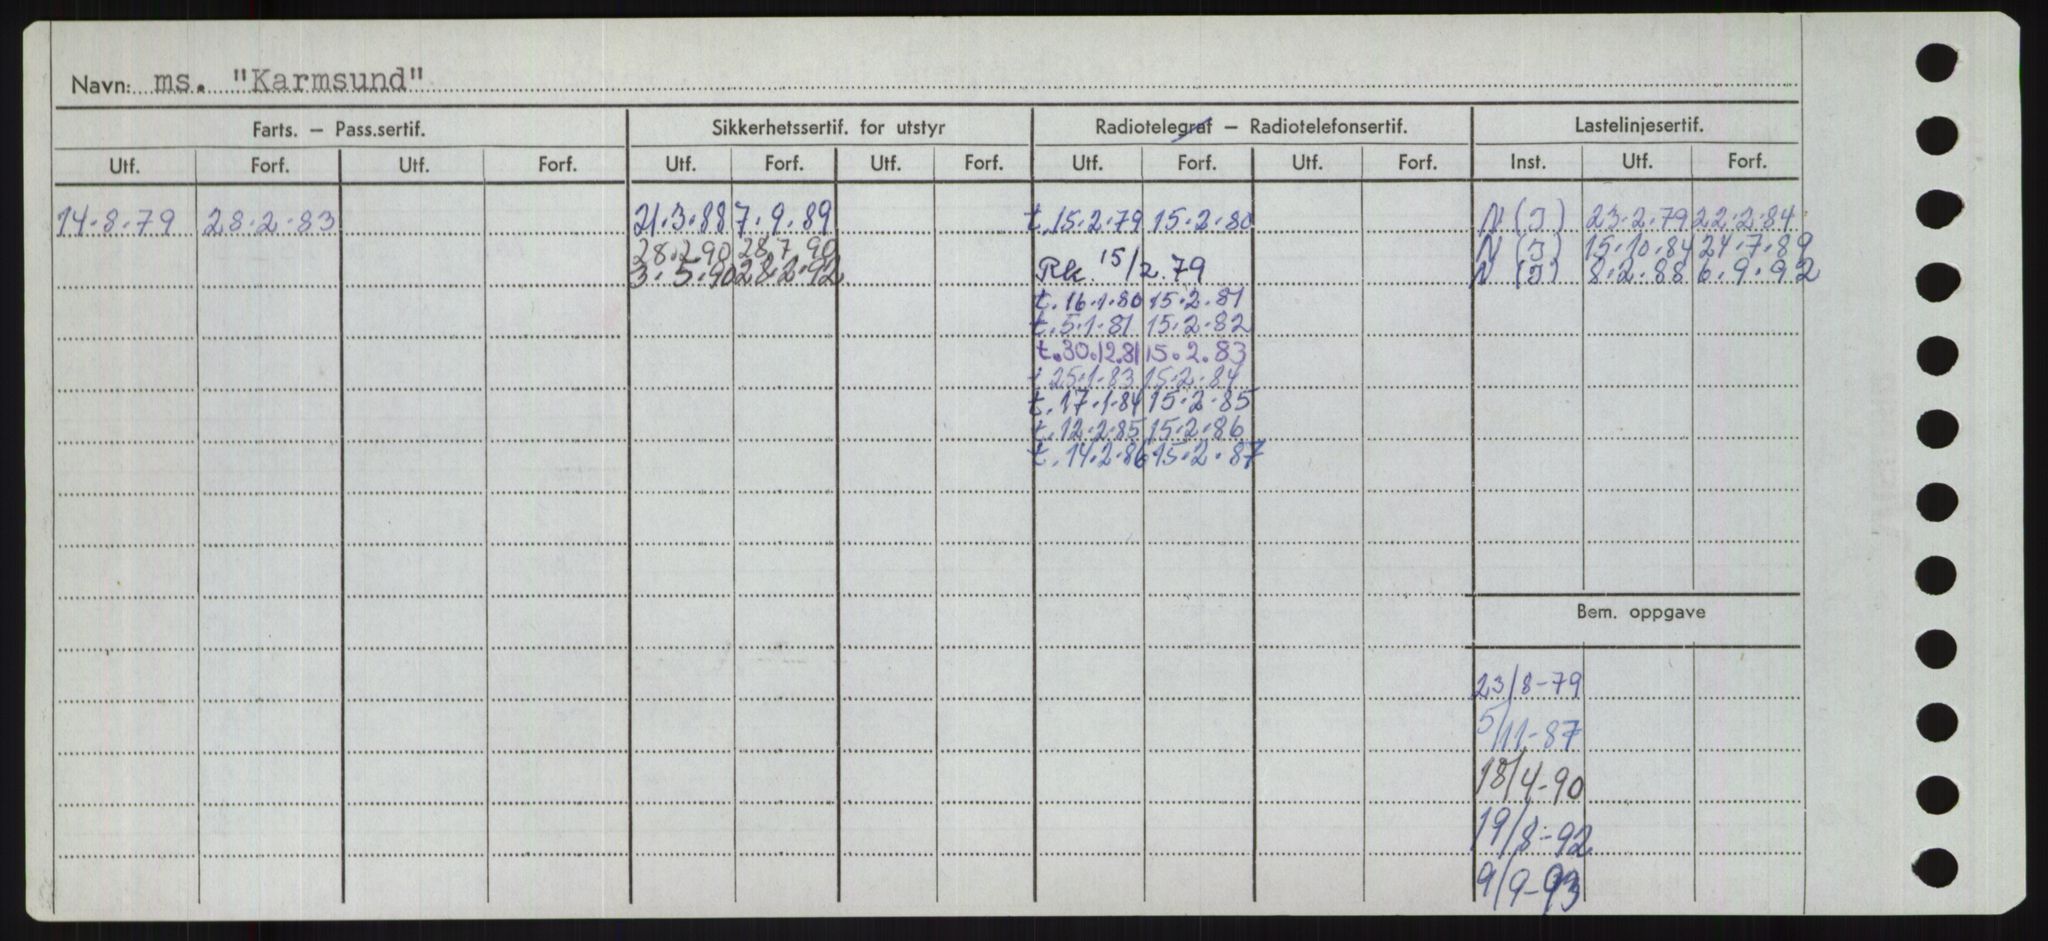 Navn: ms. "Karmsund"
Farts. – Pass.sertif. Sikkerhetssertif. for utstyr Radiotelegraf – Radiotelefonsertif. Lastelinjesertif.
Utf. Forf. Utf. Forf. Utf. Forf. Utf. Forf. Utf. Forf. Utf. Forf. Inst. Utf. Forf.
14.8.79 28.2.83 21.3.88 7.9.89 t. 15.2.79 15.2.80 N (J) 23.2.79 22.2.84
28.2.90 28.7.90 N (J) 15.10.84 24.7.89
3.5.90 28.2.92 Rk. 15/2.79 N (J) 8.2.88 6.9.92
t. 16.1.80 15.2.81
t. 5.1.81 15.2.82
t. 30.12.81 15.2.83
t 25.1.83 15.2.84
t. 17.1.84 15.2.85
t. 12.2.85 15.2.86
t. 14.2.86 15.2.87
Bem. oppgave
23/8-79
5/11-87
18/4-90
19/8-92
9/9-93